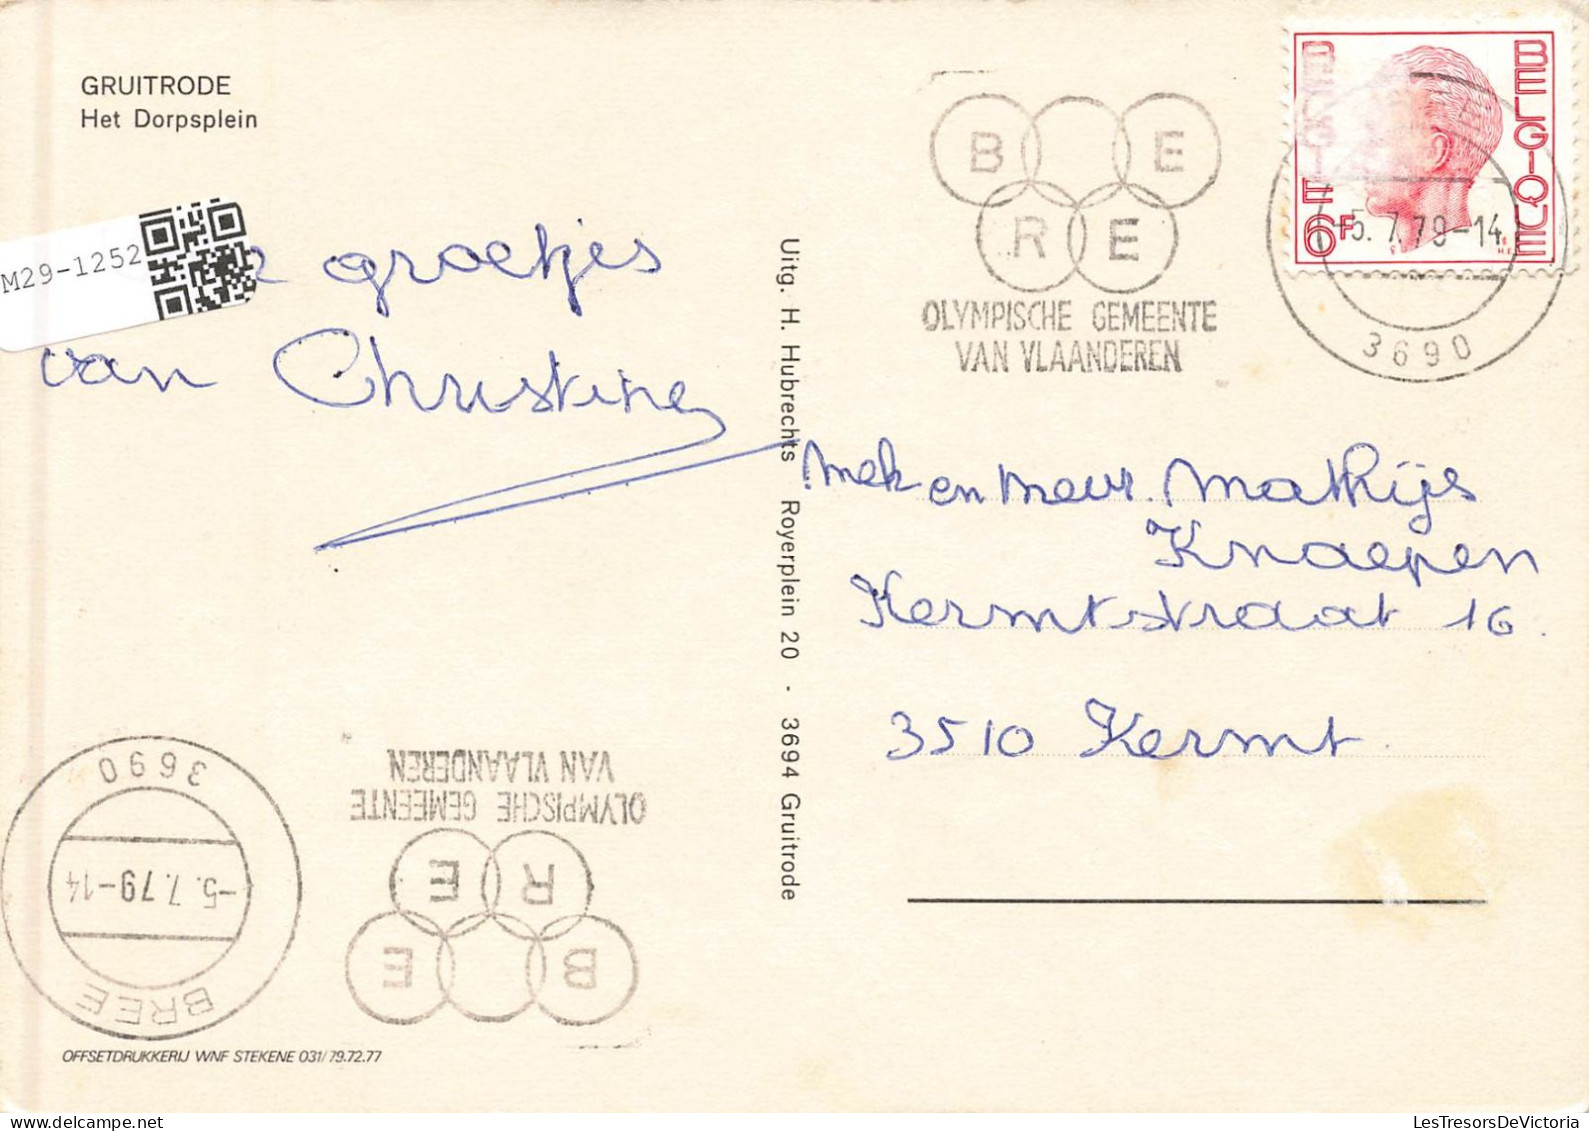 GRUITRODE
Het Dorpsplein
M29-1252
groetjes
van Christine
Uitg. H. Hubrechts Royerplein 20 - 3694 Gruitrode
B E
R E
OLYMPISCHE GEMEENTE
VAN VLAANDEREN
BELGIË BELGIQUE
6F
-5.7.79-14
3690
en Mevr. Mathijs
Knaepen
Kermtstraat 16.
3510 Kermt.
3690
-5.7.79-14
BREE
OLYMPISCHE GEMEENTE
VAN VLAANDEREN
B E
R E
OFFSETDRUKKERIJ WNF STEKENE 031/79.72.77
LesTresorsDeVictoria